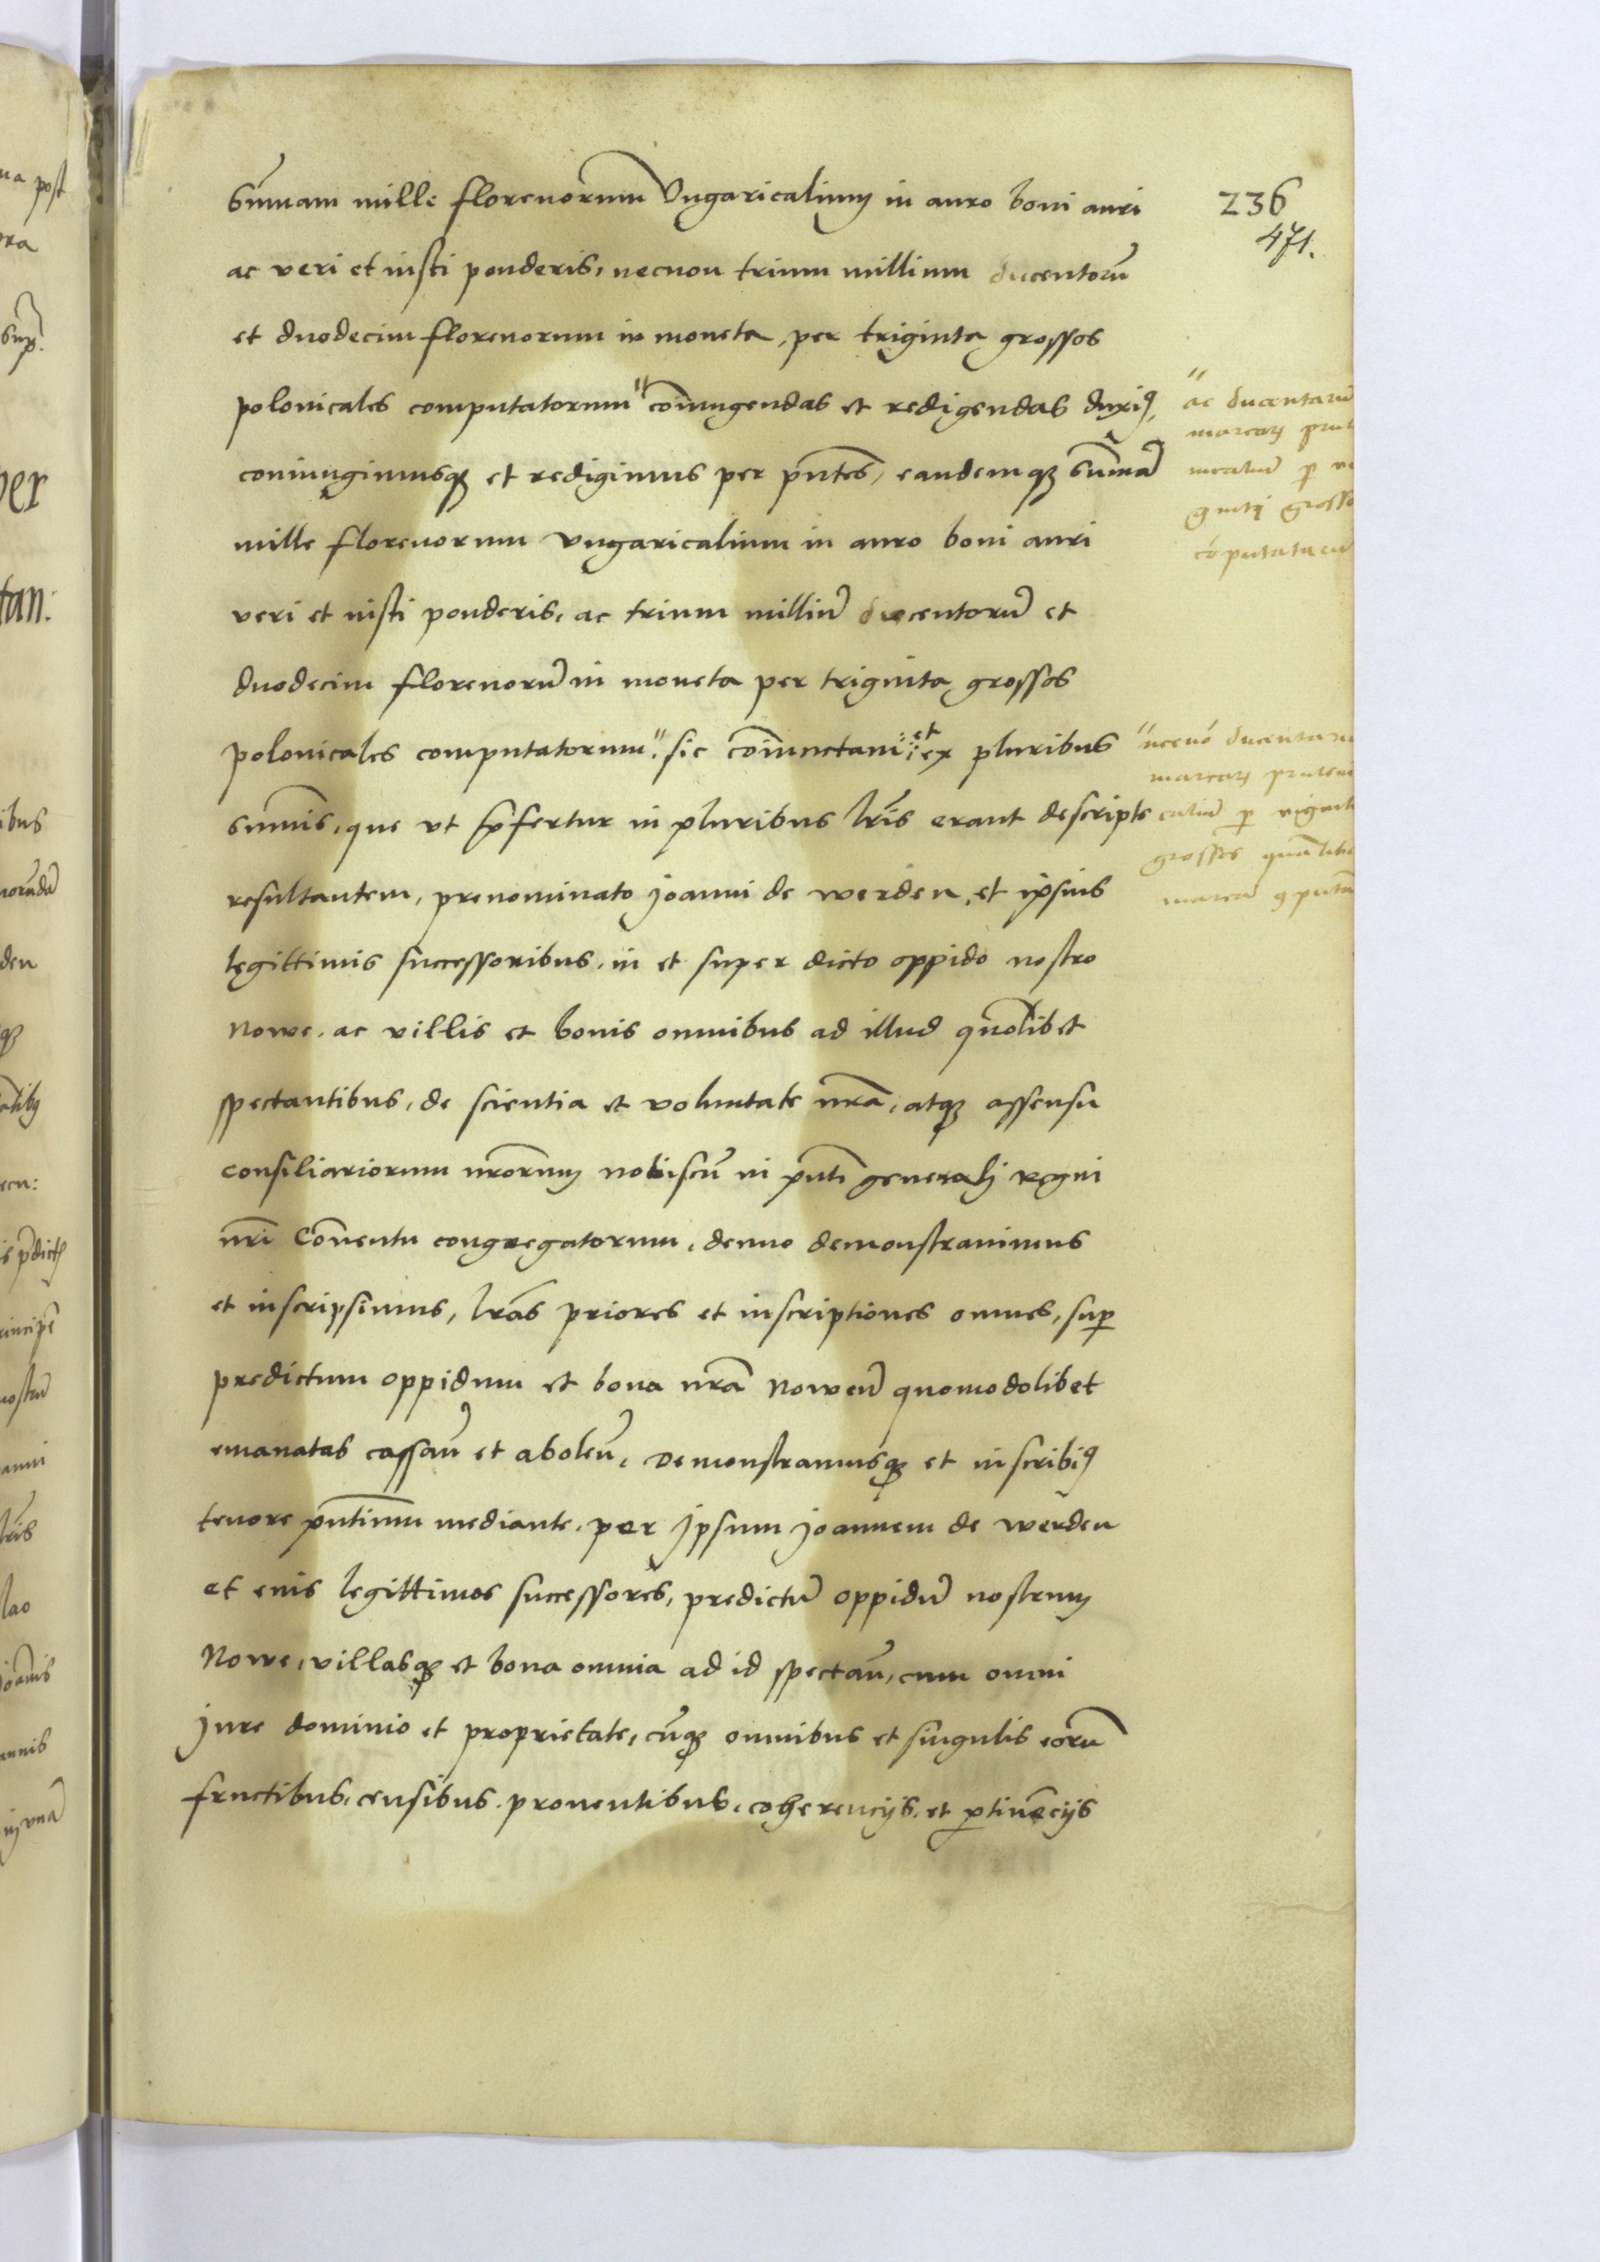 236
471.
Sum̃am mille florenorum Vngaricalium in auro boni auri
ac veri et iusti ponderis, necnon trium millium ducentorũ
et duodecim florenorum in moneta, per triginta grossos
polonicales computatorum" coniũgendas et redigendas duxiꝰ,
coniungimusqꝫ et redigimus per pñtes, eandemqꝫ sum̃ã
mille florenorum vngaricalium in auro boni auri
veri et iusti ponderis, ac trium milliũ ducentorũ et
duodecim florenorũ in moneta per triginta grossos
polonicales computatorum", sic coniũctam et ex pluribus
sum̃is, que vt p̃fertur in pluribus lr̃is erant descripte
resultantem, prenominato Joanni de werden, et ipsius
legittimis successoribus, in et super dicto oppido nostro
Nowe, ac villis et bonis omnibus ad illud quõlibet
spectantibus, de scientia et voluntate nr̃a, atqꝫ assensu
consiliariorum nr̃orum nobiscũ in pñti generali regni
nr̃i Conẽntu congregatorum, denuo demonstrauimus
et inscripsimus, lr̃as priores et inscriptiones omnes, suꝑ
predictum oppidum et bona nr̃a Nowen̄ quomodolibet
emanatas cassan̄ et abolen̄, Demonstramusqꝫ et inscribiꝰ
tenore pñtium mediante, per Ipsum Joannem de werden
et eius legittimos successores, predictũ oppidũ nostrum
Nowe, villasqꝫ et bona omnia ad id spectan̄, cum omni
Jure dominio et proprietate, cũqꝫ omnibus et singulis eorũ
fructibus, censibus, prouentibus, coherencijs, et ꝑtinẽcijs
" ac ducentarũ
marcarum prut
nicaliũ ꝑ vi
ginti grosso
cõputatarũ
" necnõ ducentaru
marcarum pruteni
caliũ ꝑ viginti
grossos quãlibe
marcã ꝯputã